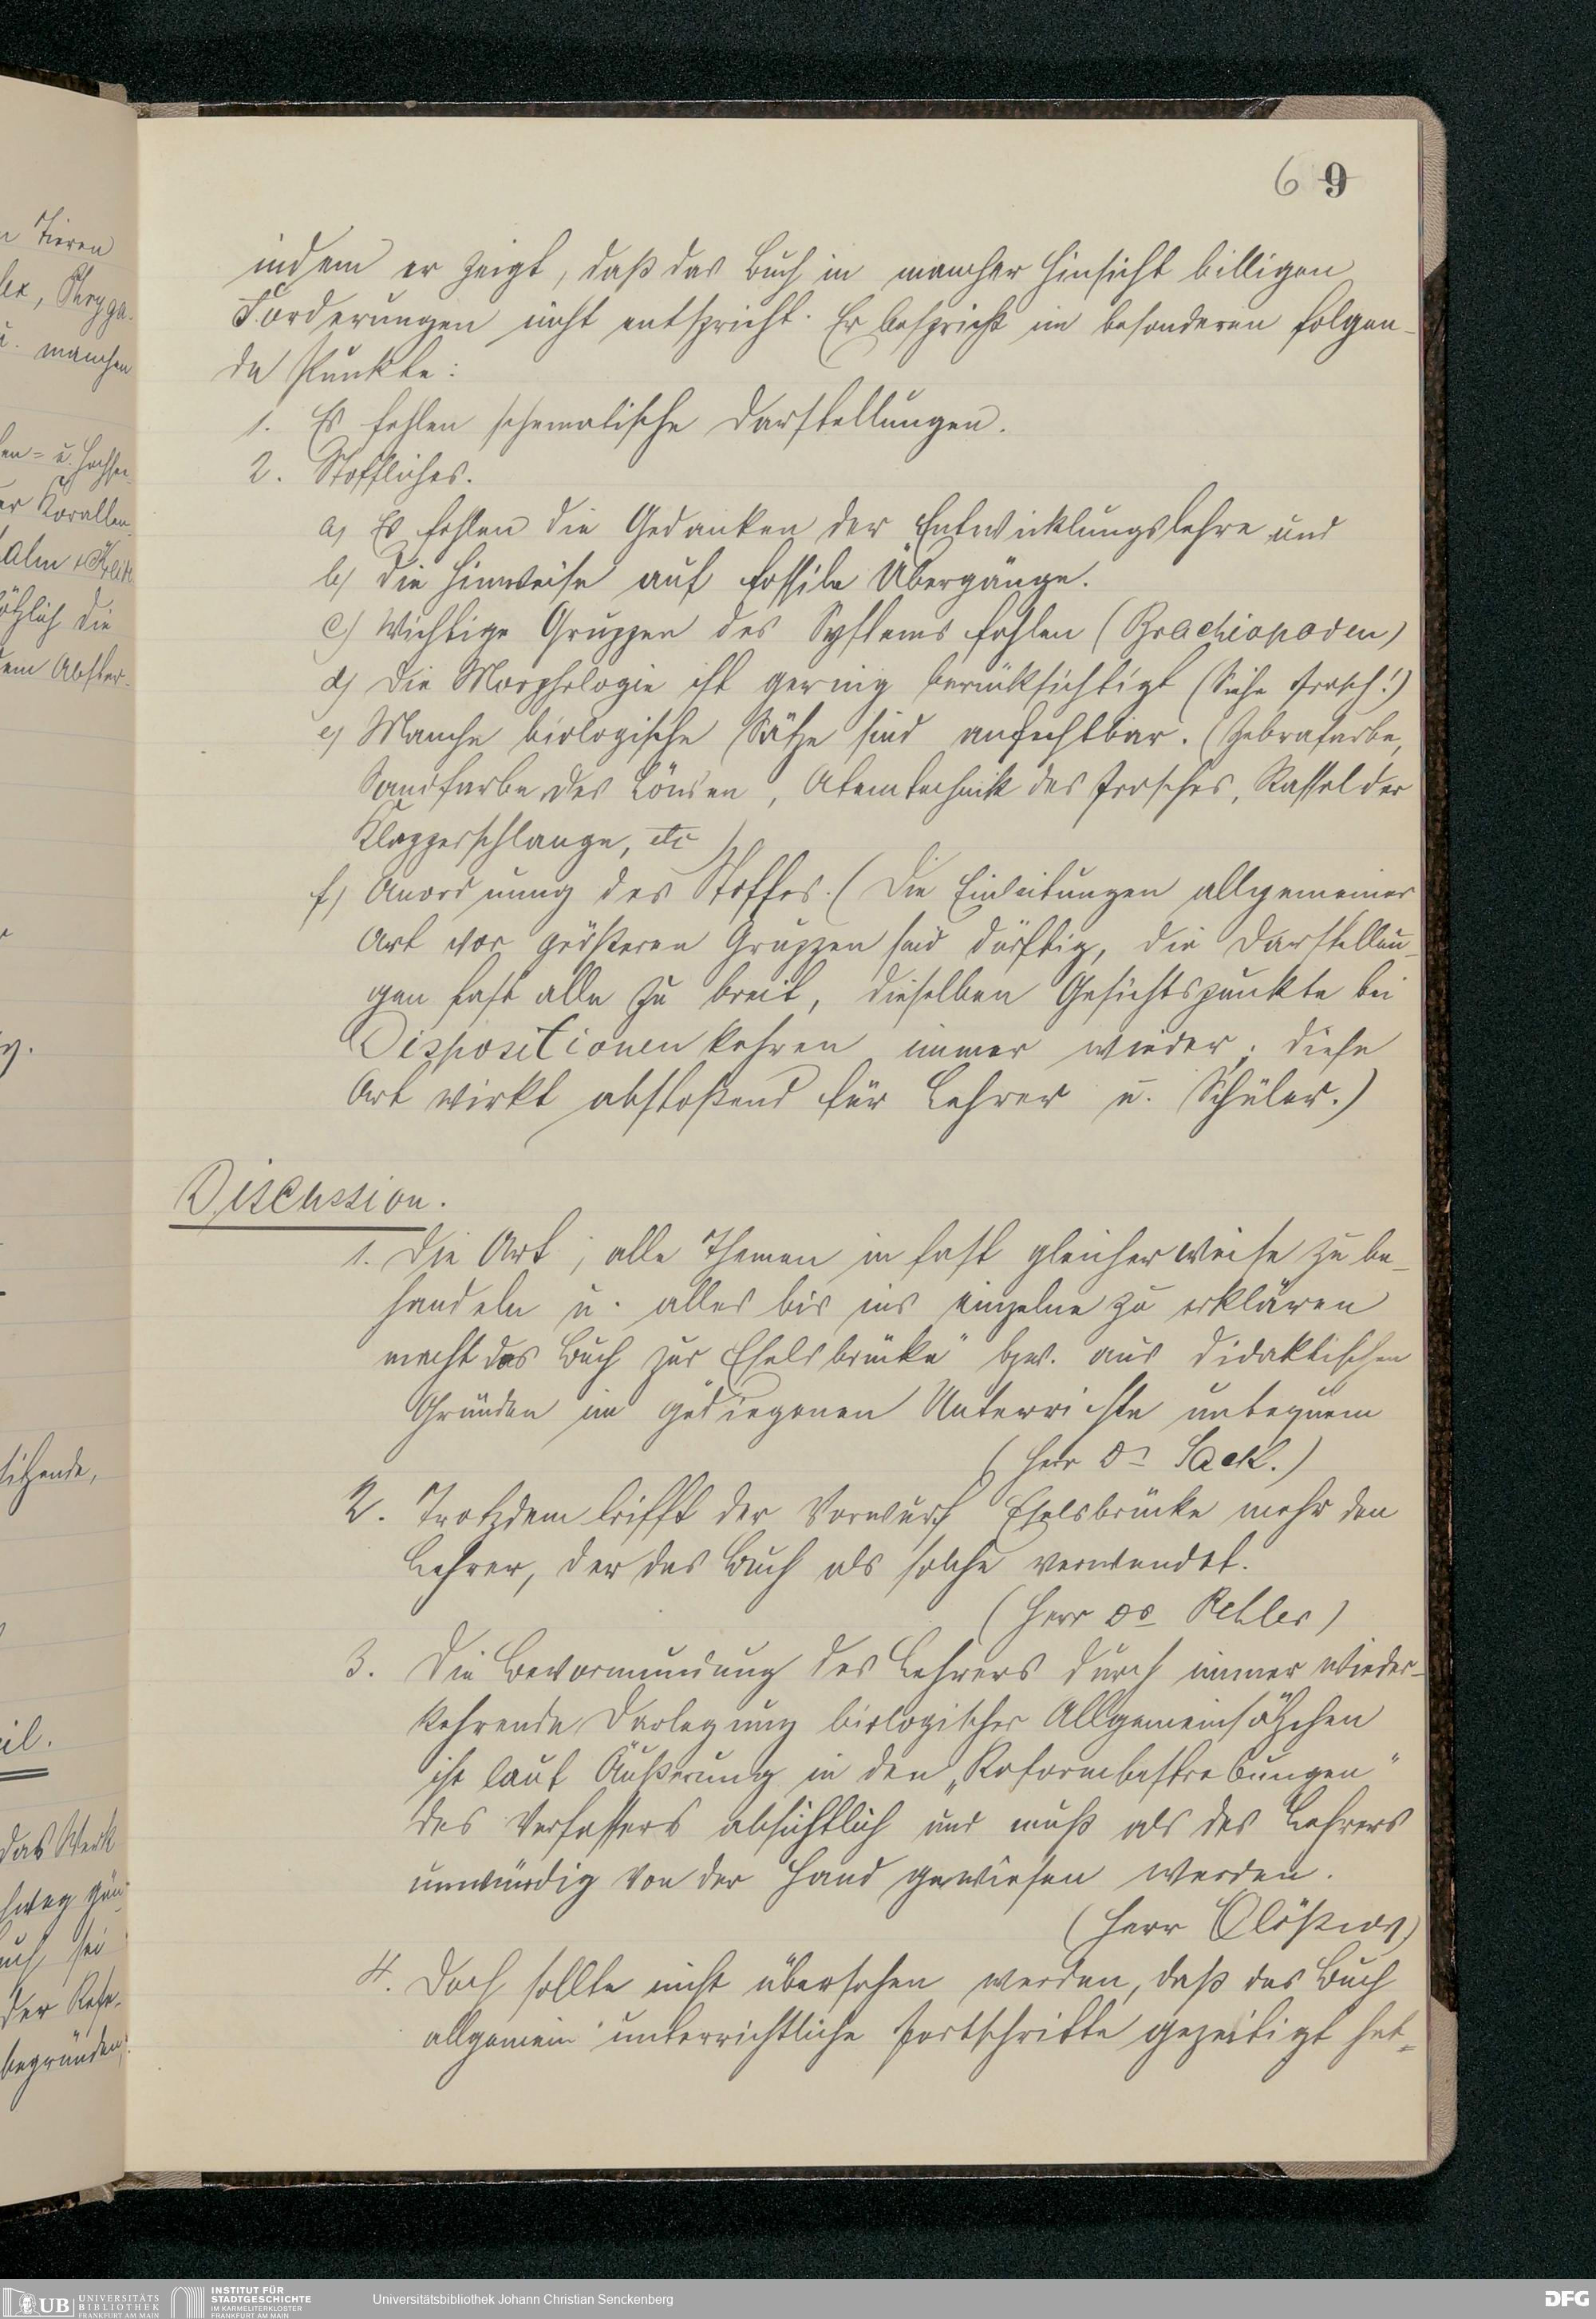 6 9
indem er zeigt, daß das Buch in mancher Hinsicht billigen
Forderungen nicht entspricht. Er bespricht im besonderen folgen-
de Punkte:
1. Es fehlen schematische Darstellungen.
2. Stoffliches.
a) Es fehlen die Gedanken der Entwicklungslehre und
b) die Hinweise auf fossile Übergänge.
c) Wichtige Gruppen des Systems fehlen (Brachiopoden)
d) Die Morphologie ist gering berücksichtigt (Siehe Frosch!)
e) Manche biologische Sätze sind anfechtbar. (Zebrafarbe,
Sandfarbe des Löwen, Atemtechnik des Frosches, Rassel der
Klapperschlange, etc)
f) Anordnung des Stoffes. (Die Einleitungen allgemeiner
Art vor größeren Gruppen sind dürftig, die Darstellun-
gen fast alle zu breit, dieselben Gesichtspunkte bei
Dispositionen kehren immer wieder; diese
Art wirkt abstoßend für Lehrer u. Schüler.)
Discussion.
1. Die Art, alle Themen in fast gleicher Weise zu be-
handeln u. alles bis ins einzelne zu erklären
macht das Buch zur Eselsbrücke" bzw. aus didaktischen
Gründen im gediegenen Unterrichte unbequem
(Herr Dr Sack.)
2. Trotzdem trifft der Vorwurf Eselsbrücke mehr den
Lehrer, der das Buch als solche verwendet.
(Herr Dr)
3. Die Bevormundung des Lehrers durch immer wieder-
kehrende Darlegung biologischer Allgemeinsätzchen
ist laut Äußerung in den „Reformbestrebungen"
des Verfassers absichtlich und muß als des Lehrers
unwürdig von der Hand gewiesen werden.
(Herr)
4. Doch sollte nicht übersehen werden, daß das Buch
allgemein unterrichtliche Fortschritte gezeitigt hat-
n Tieren
manchen
er Korallen
die
dem Abster-
sitzende,
das Werk
sei
der Refe-
begründen,
UB UNIVERSITÄTS
BIBLIOTHEK
FRANKFURT AM MAIN
INSTITUT FÜR
STADTGESCHICHTE
IM KARMELITERKLOSTER
FRANKFURT AM MAIN
Universitätsbibliothek Johann Christian Senckenberg
DFG